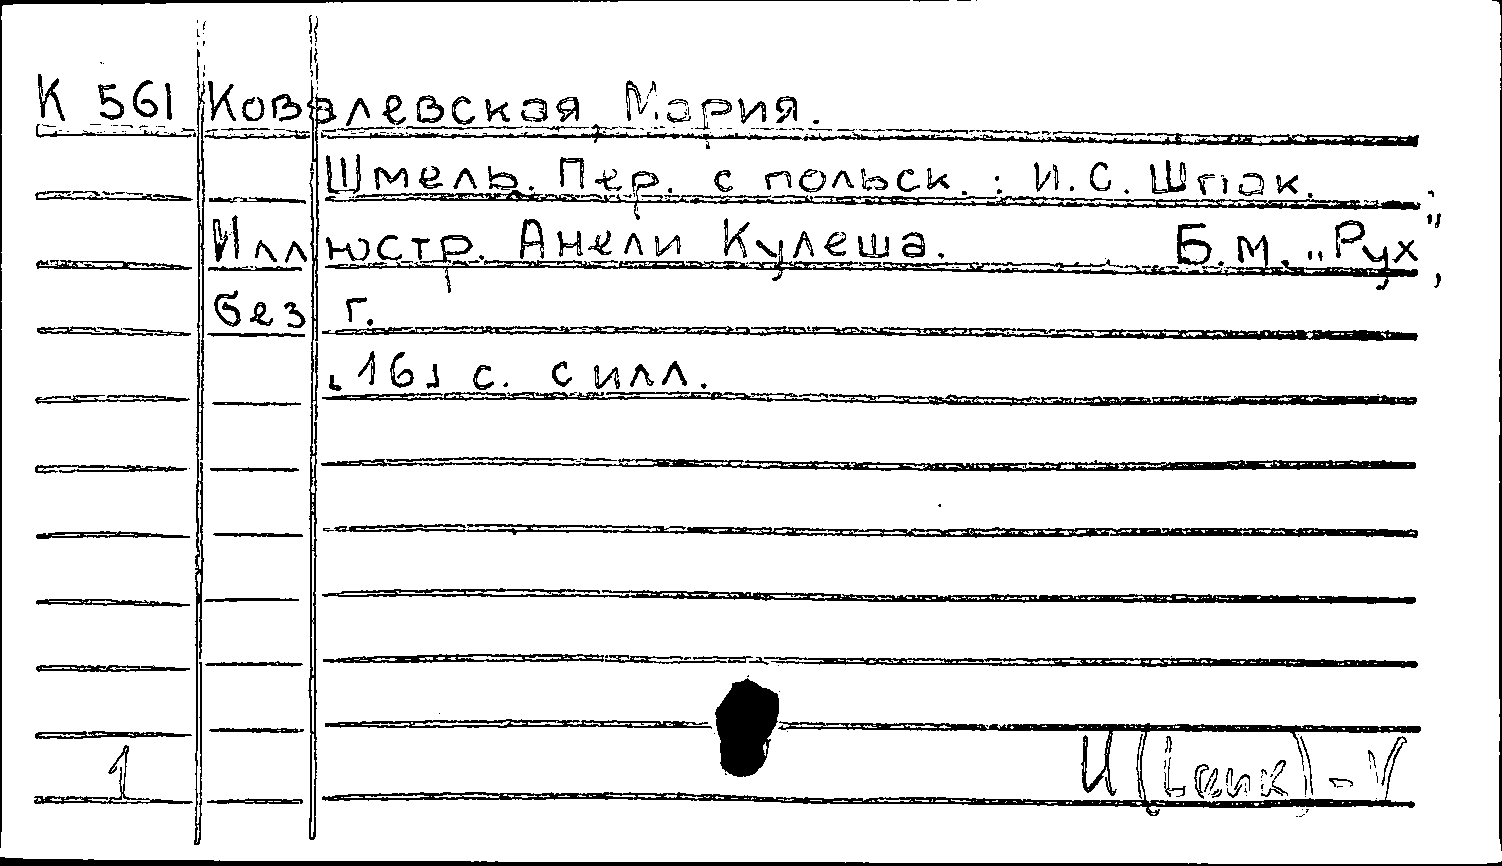 К 561 Ковалевская, Мария.
Шмель. Пер. с польск.: И.С. Шпак.
Иллюстр. Анели Кулеша. Б.м. „Рух",
без г.
[16] с. с илл.
1
И ( ) - V